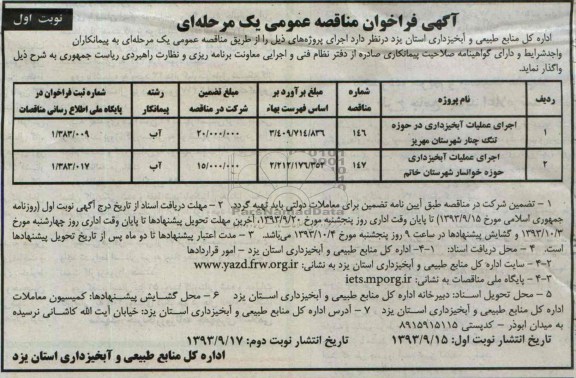 آگهی فراخوان مناقصه عمومی یک مرحله‌ای
نوبت اول
اداره کل منابع طبیعی و آبخیزداری استان یزد درنظر دارد اجرای پروژه‌های ذیل را از طریق مناقصه عمومی یک مرحله‌ای به پیمانکاران
واجدشرایط و دارای گواهینامه صلاحیت پیمانکاری صادره از دفتر نظام فنی و اجرایی معاونت برنامه ریزی و نظارت راهبردی ریاست جمهوری به شرح ذیل
واگذار نماید.
ردیف | نام پروژه | شماره مناقصه | مبلغ برآورد بر اساس فهرست بهاء | مبلغ تضمین شرکت در مناقصه | رشته پیمانکار | شماره ثبت فراخوان در پایگاه ملی اطلاع رسانی مناقصات
۱ | اجرای عملیات آبخیزداری در حوزه تنگ چنار شهرستان مهریز | ۱۴۶ | ۳/۴۰۹/۷۱۴/۸۳۶ | ۲۰/۰۰۰/۰۰۰ | آب | ۱/۳۸۳/۰۰۹
۲ | اجرای عملیات آبخیزداری حوزه خوانسار شهرستان خاتم | ۱۴۷ | ۲/۲۱۲/۱۷۶/۳۵۲ | ۱۵/۰۰۰/۰۰۰ | آب | ۱/۳۸۳/۰۱۷
۱ – تضمین شرکت در مناقصه طبق آیین نامه تضمین برای معاملات دولتی باید تهیه گردد. ۲ – مهلت دریافت اسناد از تاریخ درج آگهی نوبت اول (روزنامه
جمهوری اسلامی مورخ ۱۳۹۳/۹/۱۵) تا پایان وقت اداری روز پنجشنبه مورخ ۱۳۹۳/۹/۲۰، آخرین مهلت تحویل پیشنهادها تا پایان وقت اداری روز چهارشنبه مورخ
۱۳۹۳/۱۰/۳ و گشایش پیشنهادها در ساعت ۹ روز پنجشنبه مورخ ۱۳۹۳/۱۰/۴ می‌باشد. ۳ – مدت اعتبار پیشنهادها تا دو ماه پس از تاریخ تحویل پیشنهادها
است. ۴ – محل دریافت اسناد: ۱-۴- اداره کل منابع طبیعی و آبخیزداری استان یزد – امور قراردادها
۲-۴ – سایت اداره کل منابع طبیعی و آبخیزداری استان یزد به نشانی: www.yazd.frw.org.ir
۳-۴ – پایگاه ملی مناقصات به نشانی: iets.mporg.ir
۵ – محل تحویل اسناد: دبیرخانه اداره کل منابع طبیعی و آبخیزداری استان یزد ۶ – محل گشایش پیشنهادها: کمیسیون معاملات
اداره کل منابع طبیعی و آبخیزداری استان یزد ۷ – آدرس اداره کل منابع طبیعی و آبخیزداری استان یزد: خیابان آیت الله کاشانی نرسیده
به میدان ابوذر – کدپستی ۸۹۱۵۹۱۵۱۱۵
تاریخ انتشار نوبت اول: ۱۳۹۳/۹/۱۵ تاریخ انتشار نوبت دوم: ۱۳۹۳/۹/۱۷
اداره کل منابع طبیعی و آبخیزداری استان یزد